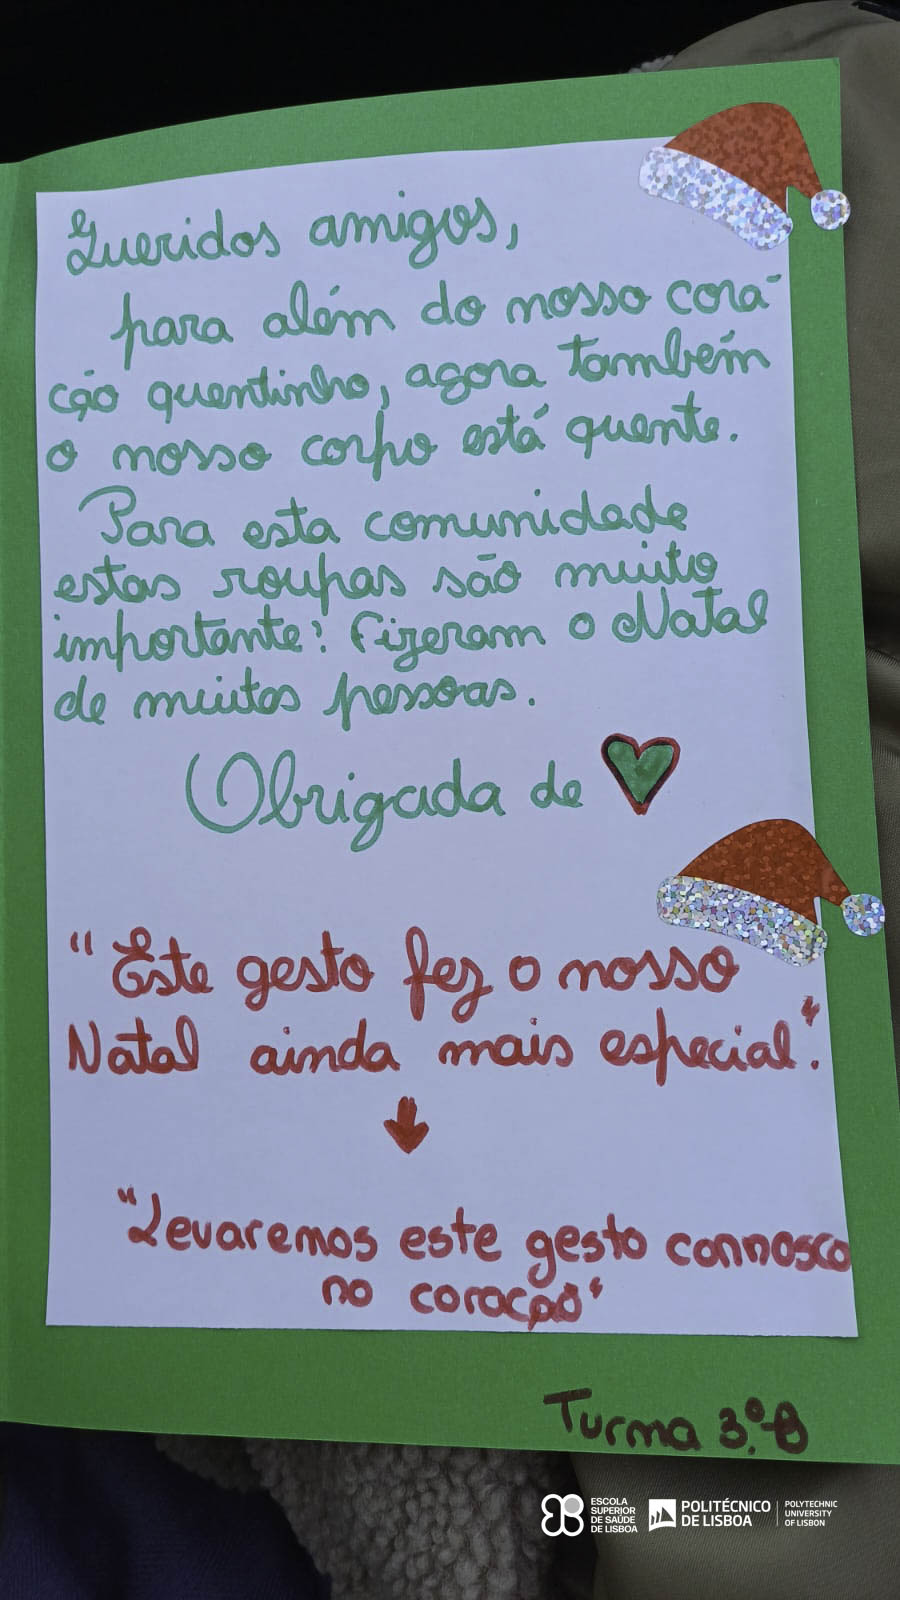 Queridos amigos,
para além do nosso cora-
ção quentinho, agora também
o nosso corpo está quente.
Para esta comunidade
estas roupas são muito
importante! Fizeram o Natal
de muitas pessoas.
Obrigada de
"Este gesto fez o nosso
Natal ainda mais especial".
"Levaremos este gesto connosco
no coração"
Turma 3.º B
ESCOLA
SUPERIOR
DE SAÚDE
DE LISBOA
POLITÉCNICO
DE LISBOA
POLYTECHNIC
UNIVERSITY
OF LISBON